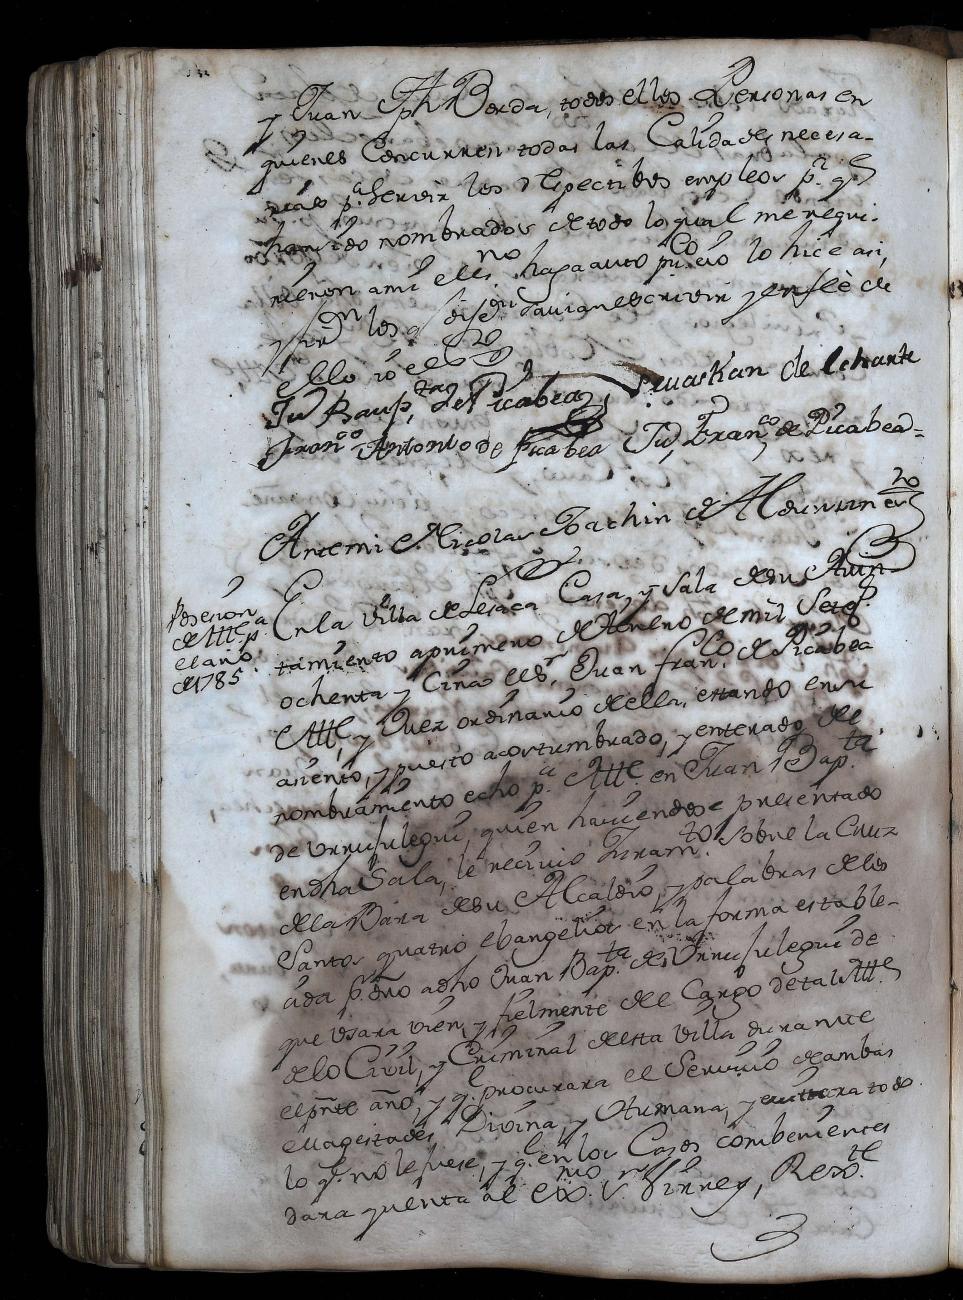 y Juan Jph Borda, todos ellos Personas en
quienes Concurren todas las Calidades necesa-
rias pa. servir los respectibos empleos pr. qe
han sido nombrados de todo lo qual me requi-
rieron a mi el esno. haga auto puco. y lo hice asi,
firmn. los qe dijen. savian escrivir y en fè de
ello yo el esno.
Jn Baupta. de Picabea, Sevastian de Echarte
Franco. Antonio de Picabea Jn, Franco. de Picabea=
Antemi Nicolas Joachin de Aldunzin esno.
Posesion
de Alle pa.
el año
de 1785
En la villa de Lesaca Casa, y Sala de su Aiun
tamiento a primero de Henero de mil Setes.
ochenta y Cinco el Sr. Juan Franco. de Picabea
Alle, y Juez ordinario de ella, estando en su
asiento, y puesto acostumbrado, y enterado del
nombramiento echo pa. Alle en Juan Bapta.
de Urrusulegui, quien haviendose presentado
en dha Sala, le recivio Juramto. sobre la Cruz
de la Bara de su Alcaldio, y palabras de los
Santos quatro ebangelios en la forma estable-
cida pr. dro a dho Juan Bapta. de Urrusulegui de
que usara vien, y fielmente del Cargo de tal Alle
de lo Civil, y Criminal de esta villa durante
el pnte año, y qe. procurara el Servicio de ambas
Magestades, Divina, y Humana, y evitara todo
lo qe. no le fuese, y qe. en los Casos combenientes
dara quenta al exmo. Sr. Virrey, Rexte.